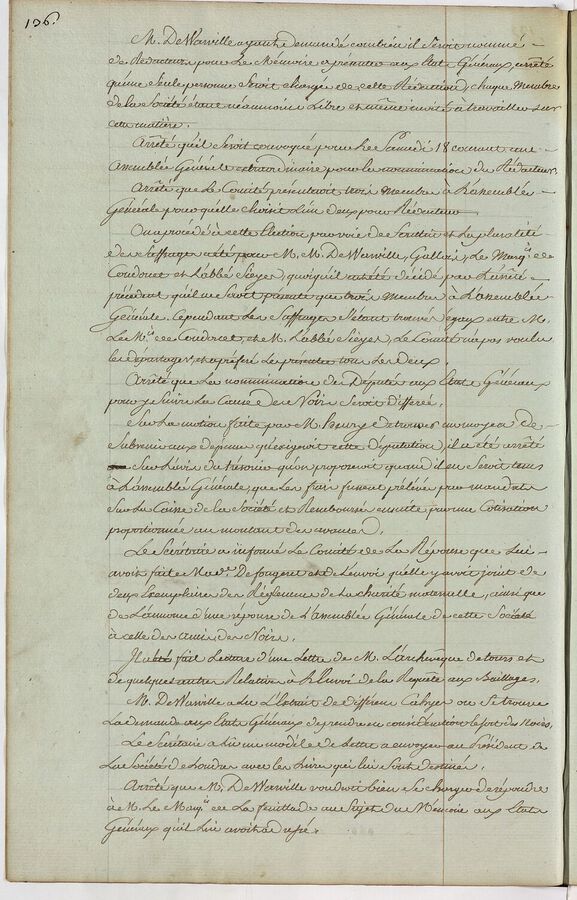 136.
M. DeWarville ayant demandé combien il seroit nommé
de Redacteurs pour le Mémoire a présenter aux Etats Généraux, arrêté
qu'une seule personne seroit chargée de cette Rédaction, chaque Membre
de la Société étant néanmoins Libre et même invité à travailler sur
cette matière.
Arrêté qu'il seroit convoqué pour le Samedi 18 courant une
Assemblée Générale extraordinaire pour la nomination du Rédacteur.
Arrêté que le Comité présenteroit trois membres à L'assemblée
Générale pour qu'elle choisit L'un deux pour Rédacteur.
On a procédé à cette Election par voie de Scrutin et la pluralité
des suffrages a été pour M. M. DeWarville, Gallois, Le Marq.is de
Condorcet et L'abbé Sieyes, quoiqu'il ait été décidé par L'arrêté
précédent qu'il ne seroit présenté que trois membres à L'assemblée
Générale. Cependant les suffrages s'étant trouvés égaux entre M.
Le M.is de Condorcet et M. L'abbé Sièyes, le Comité n'a pas voulu
les départager, et a préféré les présenter tous les Deux.
Arrêté que la nomination des Députés aux Etats Généraux
pour y suivre la Cause des Noirs seroit différée.
Sur la motion faite par M. Henry de trouver un moyen de
subvenir aux dépenses qu'exigeroit cette députation, il a été arrêté
sur L'avis du trésorier qu'on proposeroit quand il en seroit tems
à L'assemblée Générale, que les frais fussent prélevés par mandats
sur la Caisse de la Société et Remboursés ensuite par une Cotisation
proportionnée au montant des avances.
Le Secrétaire a informé le Comité de la Réponse que lui
avoit faite Mad.e De fougeret et de L'envoi qu'elle y avoit joint de
deux Exemplaires des Réglemens de la charité maternelle, ainsi que
de L'annonce d'une réponse de L'assemblée Générale de cette Société
à celle des amis des Noirs.
Il a été fait Lecture d'une Lettre de M. L'archevêque de tours et
de quelques autres Relatives à L'Envoi de la Requête aux Baillages.
M. DeWarville a lu L'Extrait de différens Cahyers ou se trouve
la demande aux Etats Généraux de prendre en considération le sort des Noirs.
Le Secrétaire a lu un modèle de Lettre a envoyer au Président de
La Société de Londres avec les Livres qui lui sont destinés.
Arrêté que M. DeWarville voudroit bien se charger de répondre
à M. Le Marq.is de La feuillade au sujet du Mémoire aux Etats
Généraux qu'il lui avoit adressé.